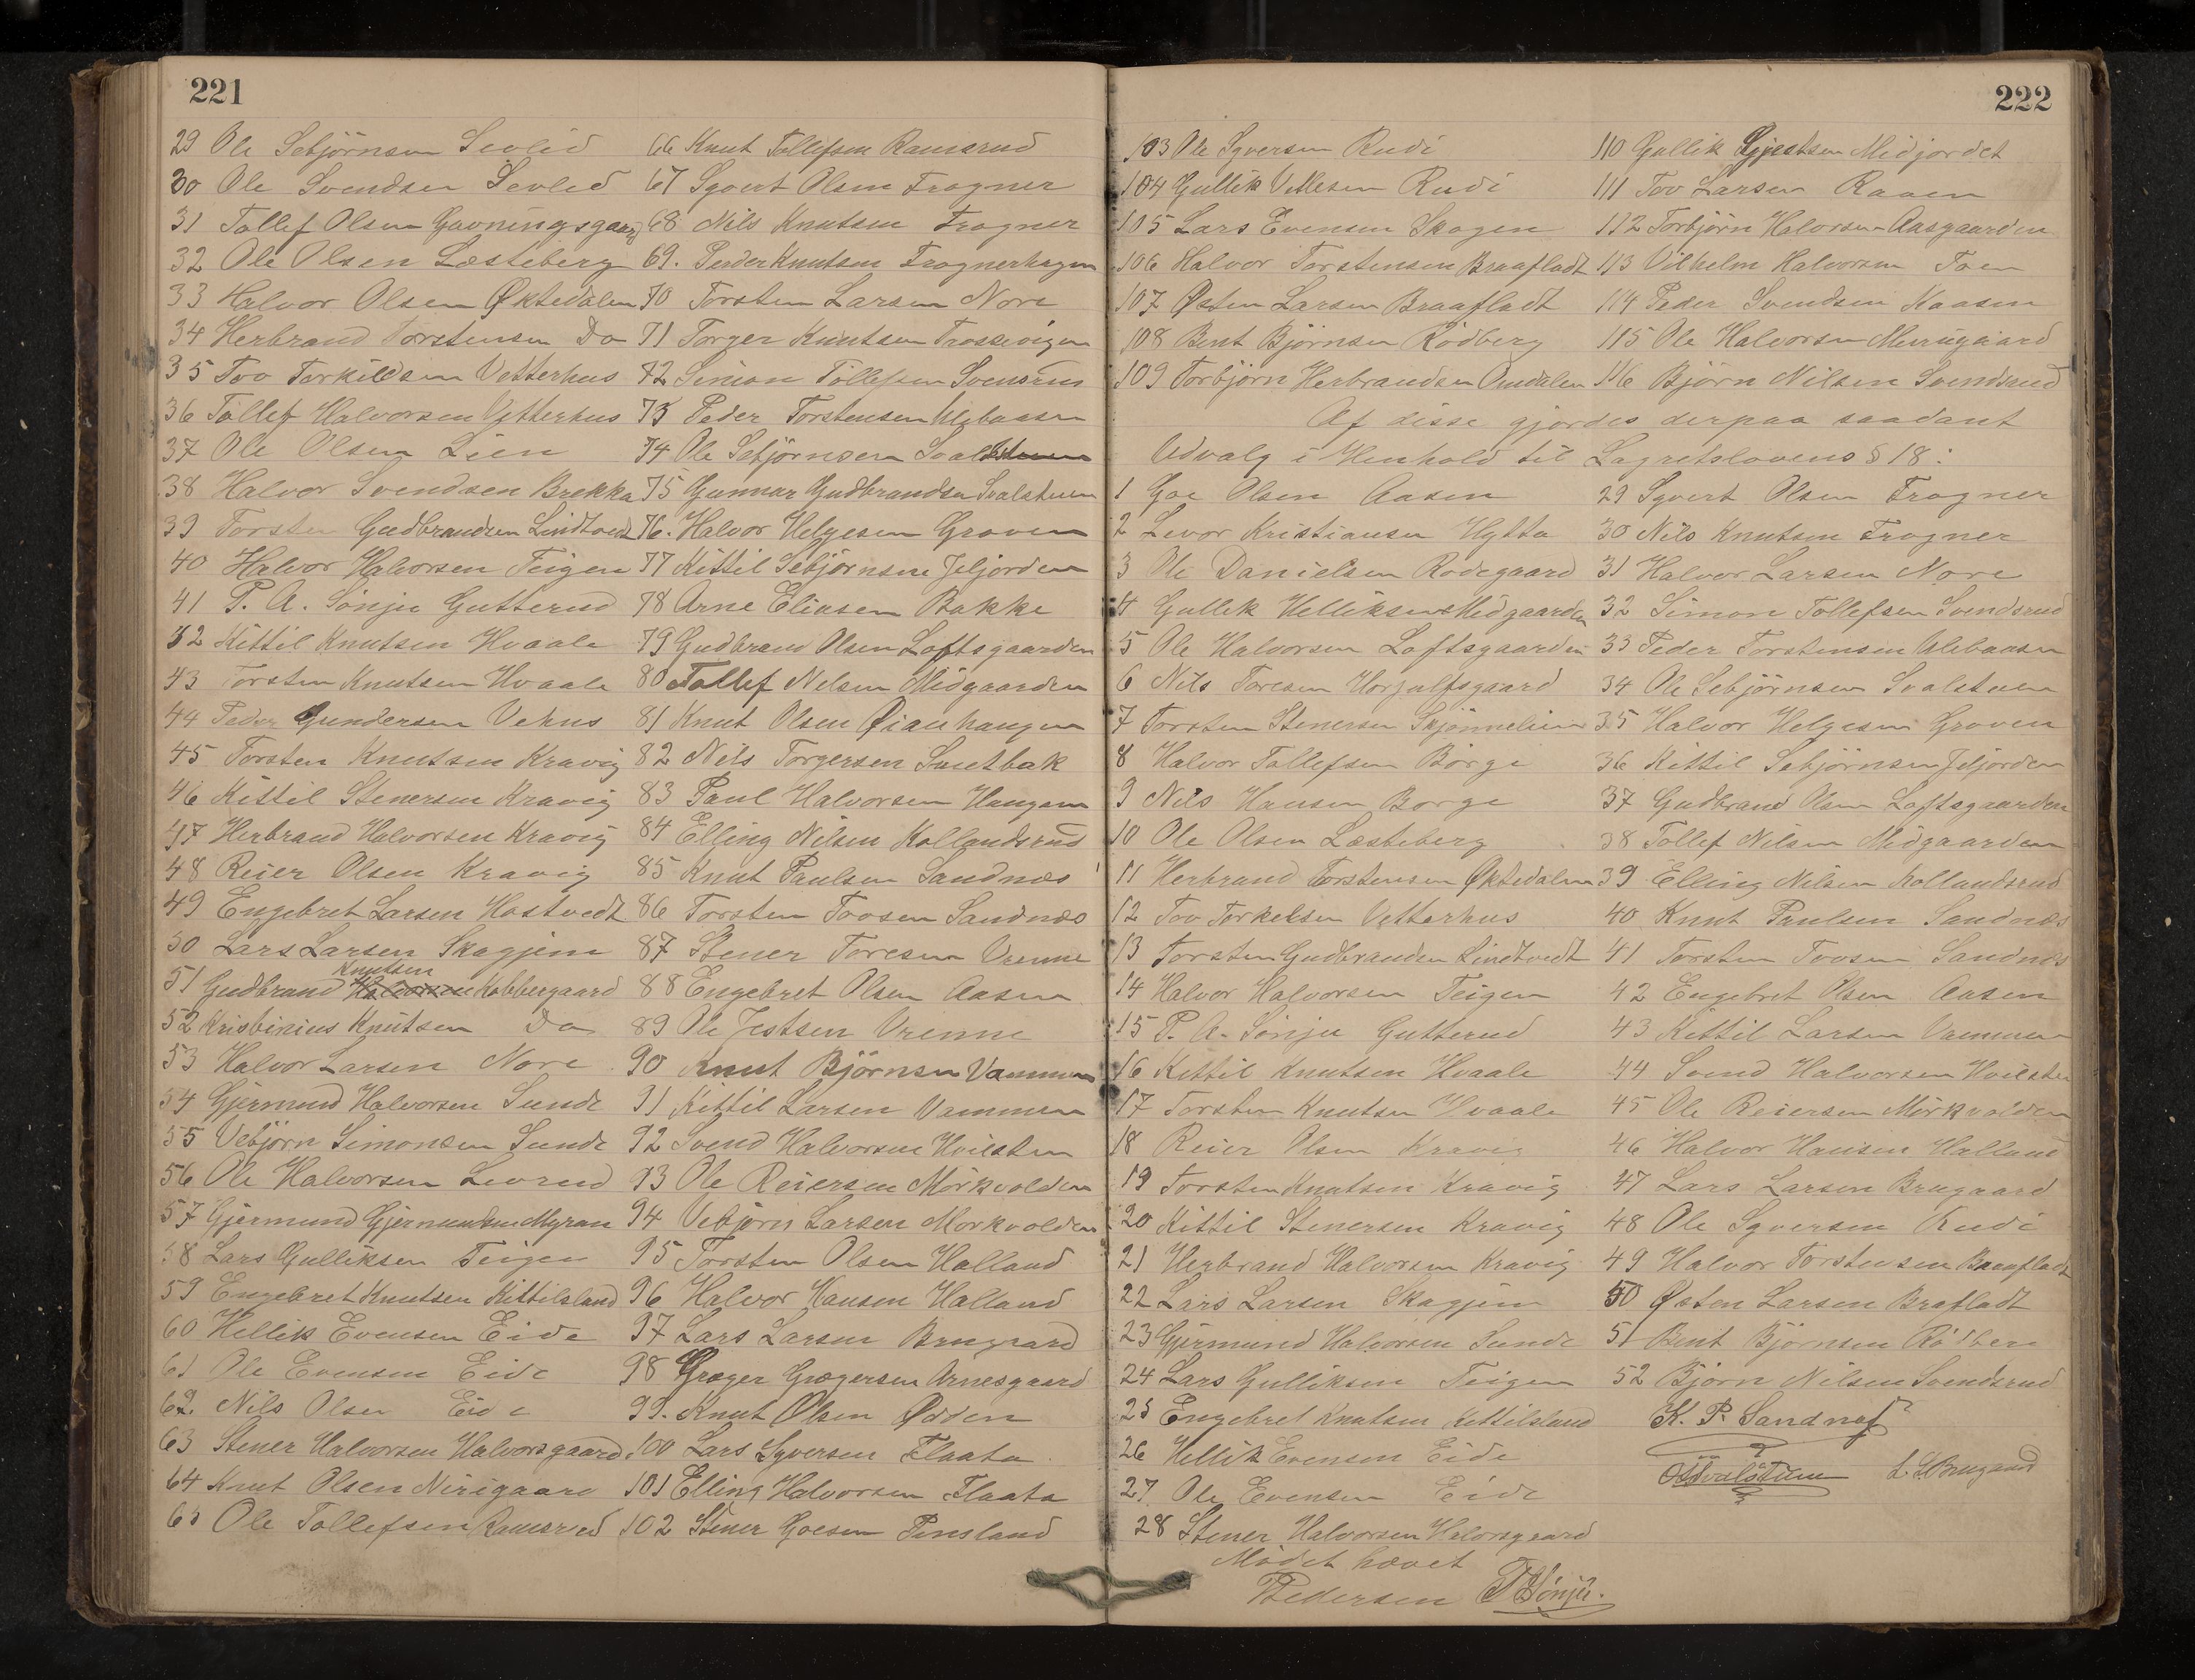 221
29 Ole Sebjörnsen Sevlid
30 Ole Svendsen Sevled
31 Tollef Olsen Gavningsgaard
32 Ole Olsen Læsteberg
33 Halvor Olsen Øktedalen
34 Herbrand Torstensen Do
35 Tov Torkildsen Vetterhus
36 Tollef Halvorsen Vetterhus
37 Ole Olsen Lien
38 Halvor Svendsen Brekka
39 Torsten Gudbrandsen Lindtvedt
40 Halvor Halvorsen Teigen
41 P. A. Sönju Gutterud
42 Kittil Knutsen Hvaale
43 Torsten Knutsen Hvaale
44 Peder Gundersen Vehus
45 Torsten Knutsen Kravig
46 Kittil Stenersen Kravig
47 Herbrand Halvorsen Kravig
48 Reier Olsen Kravig
49 Engebret Larsen Hostvedt
50 Lars Larsen Skagjem
Knutsen
51 Gudbrand Halvorsen Kobbergaard
52 Kristinius Knutsen Do
53 Halvor Larsen Nore
54 Gjermund Halvorsen Sunde
55 Vebjörn Simonsen Sunde
56 Ole Halvorsen Levrud
57 Gjermund Gjermundsen Myran
58 Lars Gulliksen Teigen
59 Engebret Knutsen Kittilsland
60 Hellik Evensen Eide
61 Ole Evensen Eide
62. Nils Olsen Eide
63 Stener Halvorsen Halvorsgaard
64 Knut Olsen Nirigaard
65 Ole Tollefsen Ramsrud
66 Knut Tollefsen Ramsrud
67 Sgvert Olsen Frogner
68 Nils Knutsen Frogner
69. Peder Knutsen Frognerhagen
70 Torsten Larsen Nore
71 Torger Knutsen Frossevigen
72 Simon Tollefsen Svensrud
73 Peder Torstensen Ulebaasen
74 Ole Sebjörnsen Svalstuen
75 Gunnar Gudbrandsen Svalstuen
76. Halvor Helgesen Groven
77 Kittil Sebjörnsen Jeljorden
78 Arne Eliasen Bakke
79 Gudbrand Olsen Loftsgaarden
80 Tollef Nilsen Midgaarden
81 Knut Olsen Øianhaugen
82 Nils Torgersen Smetbak
83 Paul Halvorsen Haugen
84 Elling Nilsen Kollandsrud
85 Knut Paulsen Sandnes
86 Torsten Tovsen Sandnæs
87 Stener Toresen Vrenne
88 Engebret Olsen Aasen
89 Ole Jestsen Vrenne
90 Knut Björnsen Vammen
91 Kittil Larsen Vammen
92 Svend Halvorsen Hvilsten
93 Ole Reiersen Mörkvolden
94 Vebjörn Larsen Morkvolden
95 Torsten Olsen Halland
96 Halvor Hansen Halland
97 Lars Larsen Brugaard
98 Græger Grægersen Arnesgaard
99. Knut Olsen Ødden
100 Lars Sgversen Flaata
101 Elling Halvorsen Flaata
102 Stener Goesen Pensland
222
103 Ole Sgversen Rudi
104 Gullik Vetlesen Rudi
105 Lars Evensen Skogen
106 Halvor Torstensen Braafladt
107 Østen Larsen Braafladt
108 Bent Björnsen Rödberg
109 Torbjörn Herbrandsen Omdalen
110 Gullik Gjestsen Midjordet
111 Tov Larsen Raaen
112 Torbjörn Halvorsen Aasgaarden
113 Vilhelm Halvorsen Toen
114 Peder Svendsen Kaasen
115 Ole Halvorsen Mærugaard
116 Björn Nilsen Svendsrud
Af disse gjordes derpaa saadant
Udvalg i Henhold til Lagretslovens § 18:
1 Goe Olsen Aasen
2 Levor Kristiansen Hytta
3 Ole Danielsen Rodegaard
4 Gullik Helliksen Midgaarden
5 Ole Halvorsen Loftsgaarden
6 Nils Toresen Horjulfsgaard
7 Torsten Stenersen Skjönnelien
8 Halvor Tollefsen Börge
9 Nils Hansen Borge
10 Ole Olsen Læsteberg
11 Herbrand Torstensen Øktedalen
12 Tov Torkelsen Vetterhus
13 Torsten Gudbrandsen Lindtvedt
14 Halvor Halvorsen Teigen
15 P. A. Sönju Gutterud
16 Kittil Knutsen Hvaale
17 Torsten Knutsen Hvaale
18 Reier Olsen Kravig
19 Torsten Knutsen Kravig
20 Kittil Stenersen Kravig
21 Herbrand Halvorsen Kravig
22 Lars Larsen Skagjem
23 Gjermund Halvorsen Sunde
24 Lars Gulliksen Teigen
25 Engebret Knutsen Kittilsland
26 Hellik Evensen Eide
27 Ole Evensen Eide
28 Stener Halvorsen Halvorsgaard
29 Sgvert Olsen Frogner
30 Nils Knutsen Frogner
31 Halvor Larsen Nore
32 Simon Tollefsen Svendsrud
33 Peder Torstensen Ulebaasen
34 Ole Sebjörnsen Svalstuen
35 Halvor Helgesen Groven
36 Kittil Sebjörnsen Jeljorden
37 Gudbrand Olsen Loftsgaarden
38 Tollef Nilsen Midgaarden
39 Elling Nilsen Kollandsrud
40 Knut Paulsen Sandnæs
41 Torsten Tovsen Sandnæs
42 Engebret Olsen Aasen
43 Kittil Larsen Vammen
44 Svend Halvorsen Hvilsten
45 Ole Reiersen Mörkvolden
46 Halvor Hansen Halland
47 Lars Larsen Brugaard
48 Ole Sgversen Rudi
49 Halvor Torstensen Braafladt
50 Østen Larsen Brafladt
51 Bent Björnsen Rödberg
52 Björn Nilsen Svendsrud
K. P. Sandnæs
OSSvalstuen L. L. Brugaard
Mödet hævet
Pedersen PASönju.